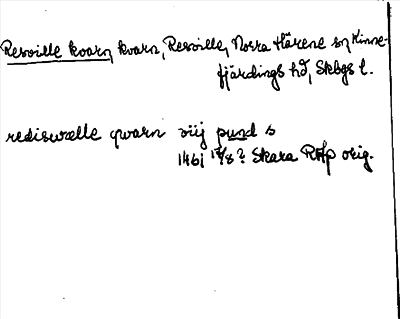 Resville kvarn, kvarn, Resville, Norra Härene sn, Kinne-
fjärdings hd, Skbgs l.
rediswælle qwarn viij pund s
1461 17/8? Skara RApp orig.